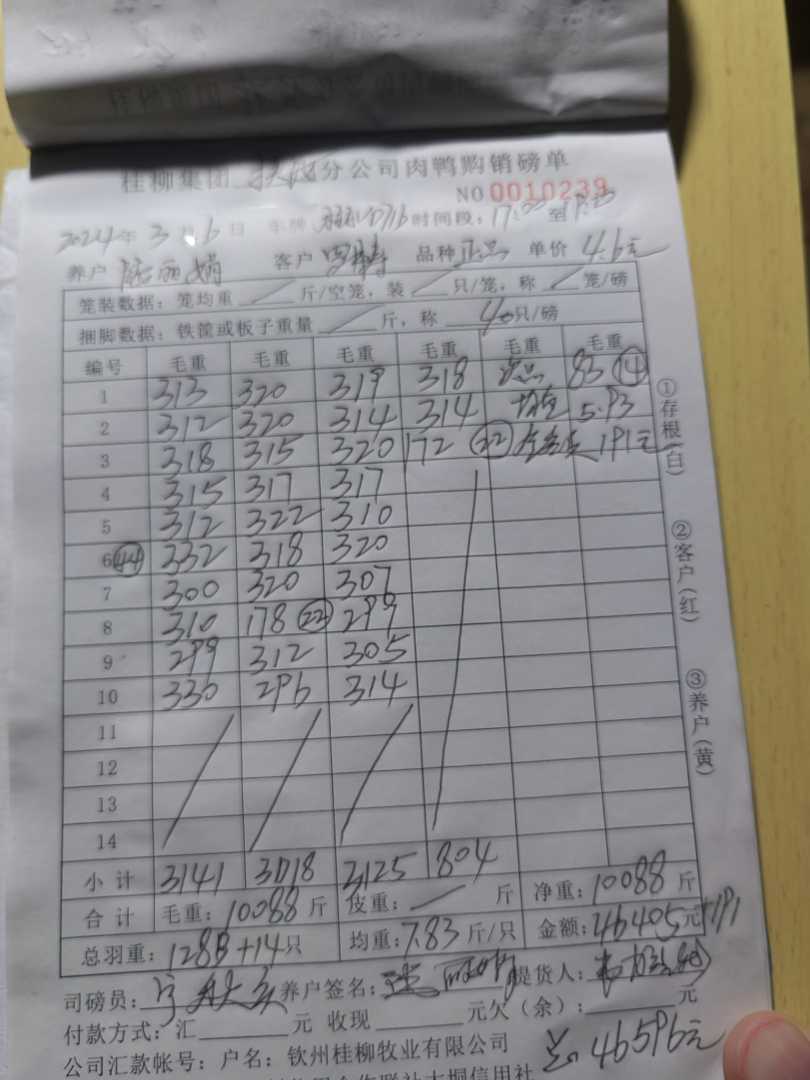 桂柳集团 分公司肉鸭购销磅单
NO 0010239
2024年 3月 6日 车牌 时间段：17:00 至
养户 丽娟 客户 品种 正品 单价 4.6元
笼装数据：笼均重 斤/空笼，装 只/笼，称 笼/磅
捆脚数据：铁筐或板子重量 斤，称 40只/磅
编号 毛重 毛重 毛重 毛重 毛重 毛重
1 313 320 319 318 次品 83 (14)
2 312 320 314 314 均重 5.93
3 318 315 320 172 (22) 金额 191元
4 315 317 317
5 312 322 310
6 (44) 332 318 320
7 300 320 307
8 310 178 (22) 299
9 299 312 305
10 330 296 314
11
12
13
14
小计 3141 3018 3125 804
合计 毛重：10088斤 皮重： 斤 净重：10088斤
总羽重：1288+14只 均重：7.83斤/只 金额：46405元+191
司磅员： 养户签名： 丽娟 提货人：
付款方式：汇 元 收现 元欠（余）： 元
总 46596元
公司汇款帐号：户名：钦州桂柳牧业有限公司
大桐信用社
①存根(白)
②客户(红)
③养户(黄)